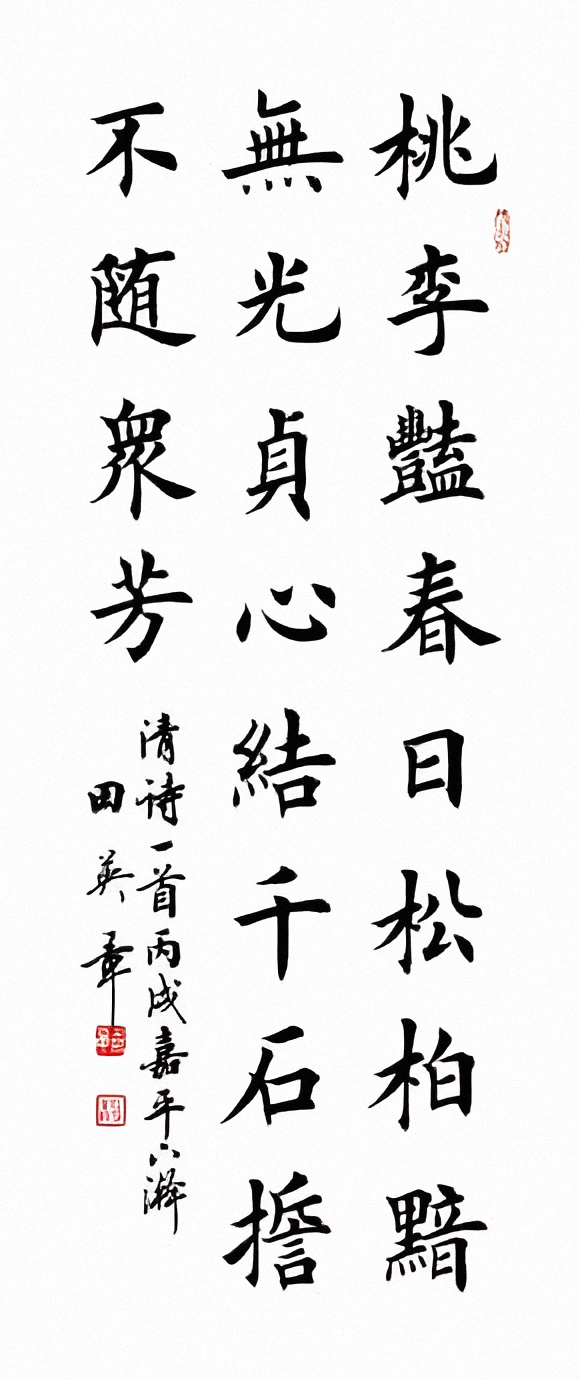 桃李豔春日松柏黯
無光貞心結千石擔
不随衆芳
清詩一首丙戌嘉平
田英章